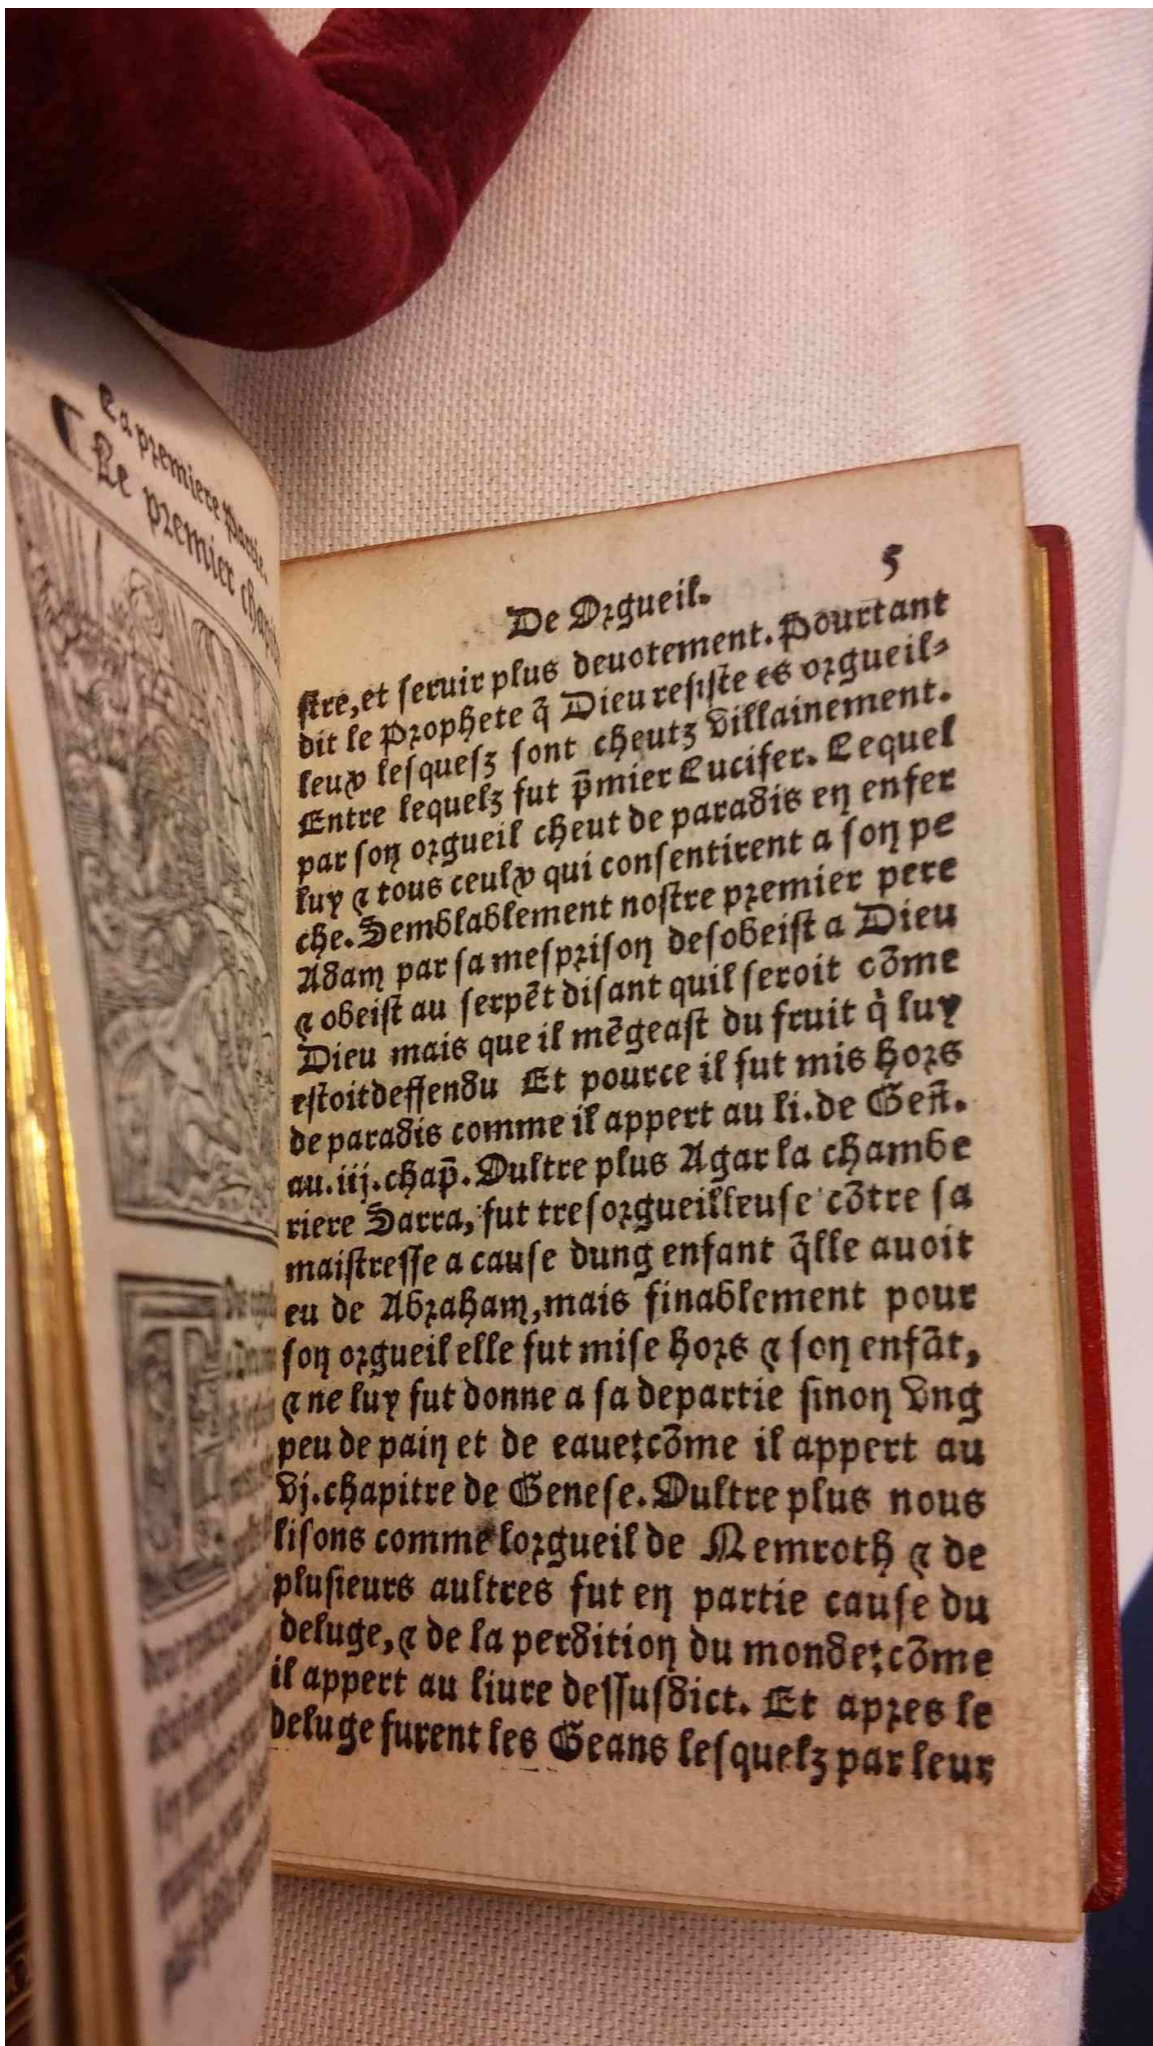 La premiere Partie.
Le premier chap
De Orgueil.
5
stre, et seruir plus deuotement. Pourtant
dit le Prophete q̃ Dieu resiste es orgueil=
leux lesquesz sont cheutz villainement.
Entre lequelz fut p̃mier Lucifer. Lequel
par son orgueil cheut de paradis en enfer
luy & tous ceulx qui consentirent a son pe
che. Semblablement nostre premier pere
Adam par sa mesprison desobeist a Dieu
& obeist au serpẽt disant quil seroit cõme
Dieu mais que il mẽgeast du fruit q̇ luy
estoit deffendu Et pource il fut mis hors
de paradis comme il appert au li. de Geñ.
au. iij. chap̃. Oultre plus Agar la chambe
riere Sarra, fut tresorgueilleuse cõtre sa
maistresse a cause dung enfant q̃lle auoit
eu de Abraham, mais finablement pour
son orgueil elle fut mise hors & son enfãt,
& ne luy fut donne a sa departie sinon vng
peu de pain et de eaue: cõme il appert au
vj. chapitre de Genese. Oultre plus nous
lisons comme lorgueil de Nemroth & de
plusieurs aultres fut en partie cause du
deluge, & de la perdition du monde: cõme
il appert au liure dessusdict. Et apres le
deluge furent les Geans lesquelz par leur